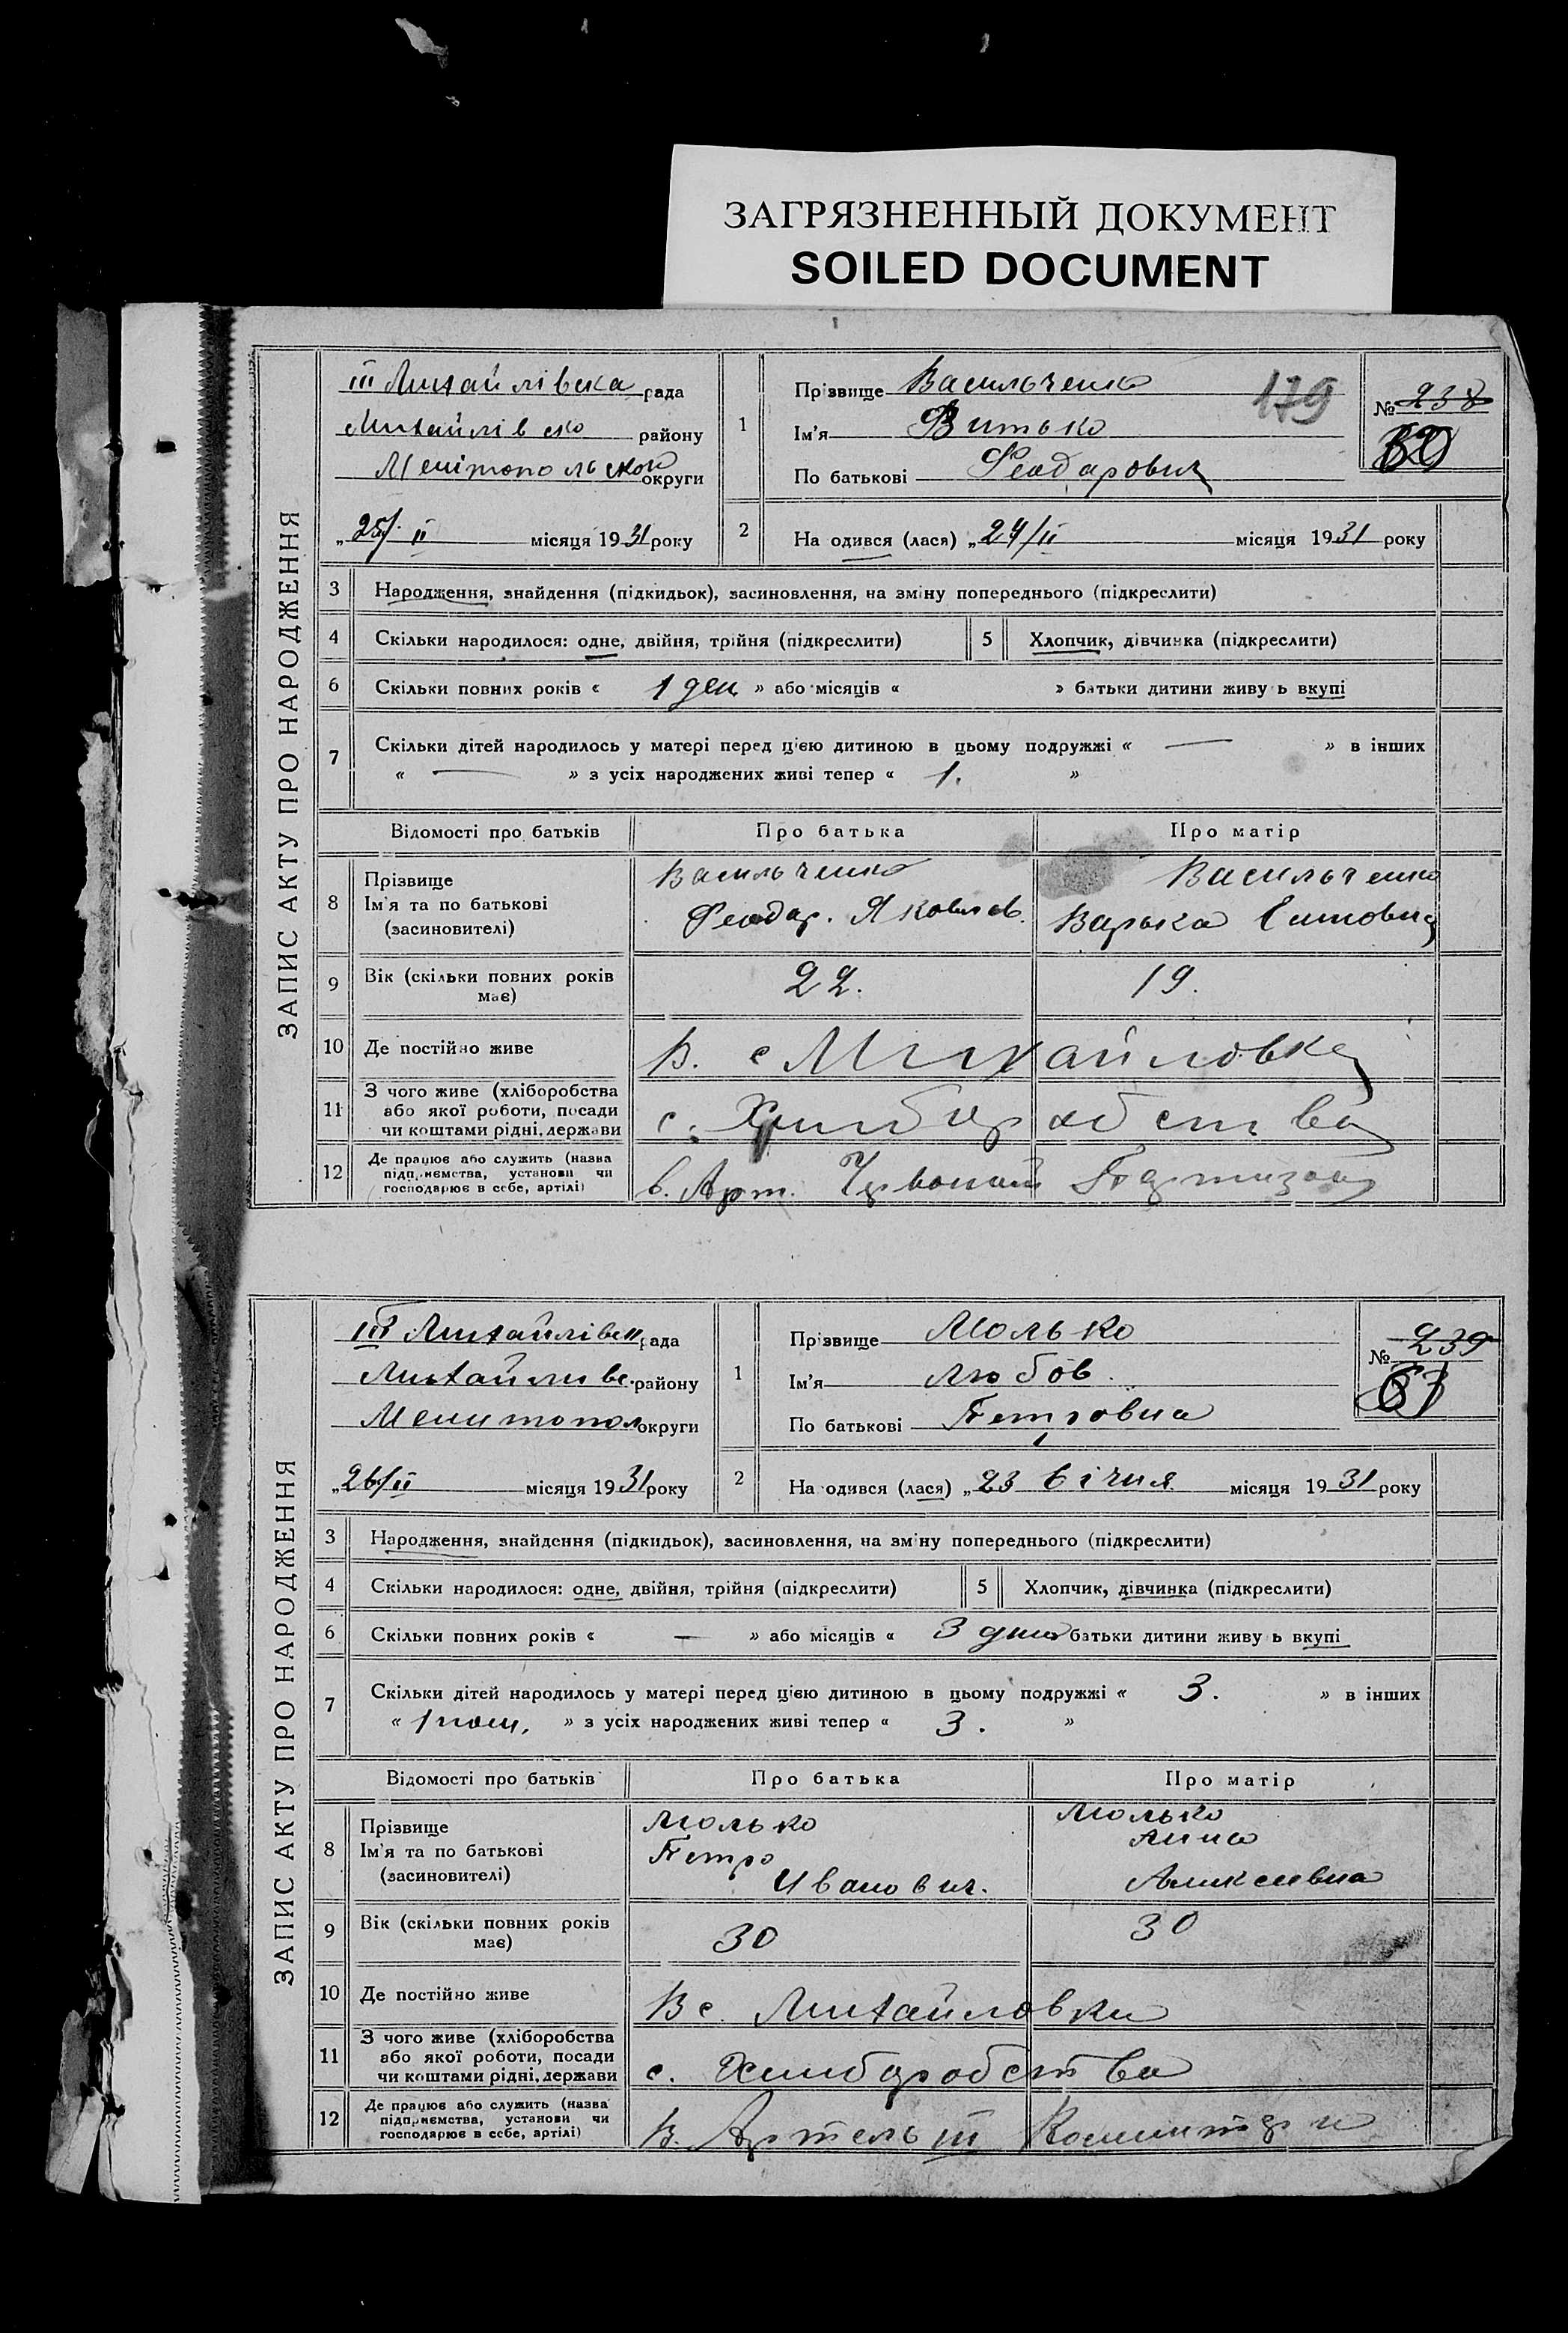 ЗАГРЯЗНЕННЫЙ ДОКУМЕНТ
SOILED DOCUMENT
ЗАПИС АКТУ ПРО НАРОДЖЕННЯ
III Михайлівска рада
Михайлівско району
Мелітопольскои округи
„25/II місяця 1931 року
1
Прізвище Васильченко
179
Ім'я Витько
По батькові Феодарович
№ 238
2
На одився (лася) „24/II місяця 1931 року
3 Народження, знайдення (підкидьок), засиновлення, на зміну попереднього (підкреслити)
4 Скільки народилося: одне, двійня, трійня (підкреслити)
5 Хлопчик, дівчинка (підкреслити)
6 Скільки повних років « 1 ден » або місяців « » батьки дитини живу ь вкупі
7 Скільки дітей народилось у матері перед цією дитиною в цьому подружжі « — » в інших
« — » з усіх народжених живі тепер « 1. »
Відомості про батьків Про батька Про матір
8 Прізвище
Ім'я та по батькові
(засновителі)
Васильченко
Феодар. Яковлев.
Васильченко
Варька
9 Вік (скільки повних років має)
22.
19.
10 Де постійно живе
В. с Михайловка
11 З чого живе (хліборобства
або якої роботи, посади
чи коштами рідні, держави
с. Хлиборобства
12 Де працює або служить (назва
підприємства, установи чи
господарює в себе, артілі)
в. Арт. Червоний Партизан
ЗАПИС АКТУ ПРО НАРОДЖЕННЯ
III Михайлівск рада
Михайливс. району
Мелитопол округи
„26/II місяця 1931 року
1
Прізвище Молько
Ім'я Любов.
По батькові Петровна
№ 239
61
2
На одився (лася) „23 Січня місяця 1931 року
3 Народження, знайдення (підкидьок), засиновлення, на зм ну попереднього (підкреслити)
4 Скільки народилося: одне, двійня, трійня (підкреслити)
5 Хлопчик, дівчинка (підкреслити)
6 Скільки повних років « — » або місяців « 3 дня батьки дитини живу ь вкупі
7 Скільки дітей народилось у матері перед цією дитиною в цьому подружжі « 3. » в інших
« 1 пом. » з усіх народжених живі тепер « 3. »
Відомості про батьків Про батька Про матір
8 Прізвище
Ім'я та по батькові
(засиновителі)
Молько
Петро
Иванович.
Молько
Анна
Аликсивна
9 Вік (скільки повних років має)
30
30
10 Де постійно живе
В с. Михайловки
11 З чого живе (хліборобства
або якої роботи, посади
чи коштами рідні, держави
с. Хлиборобства
12 Де працює або служить (назва
підприємства, установи чи
господарює в себе, артілі)
В. Артель III Коминтерн